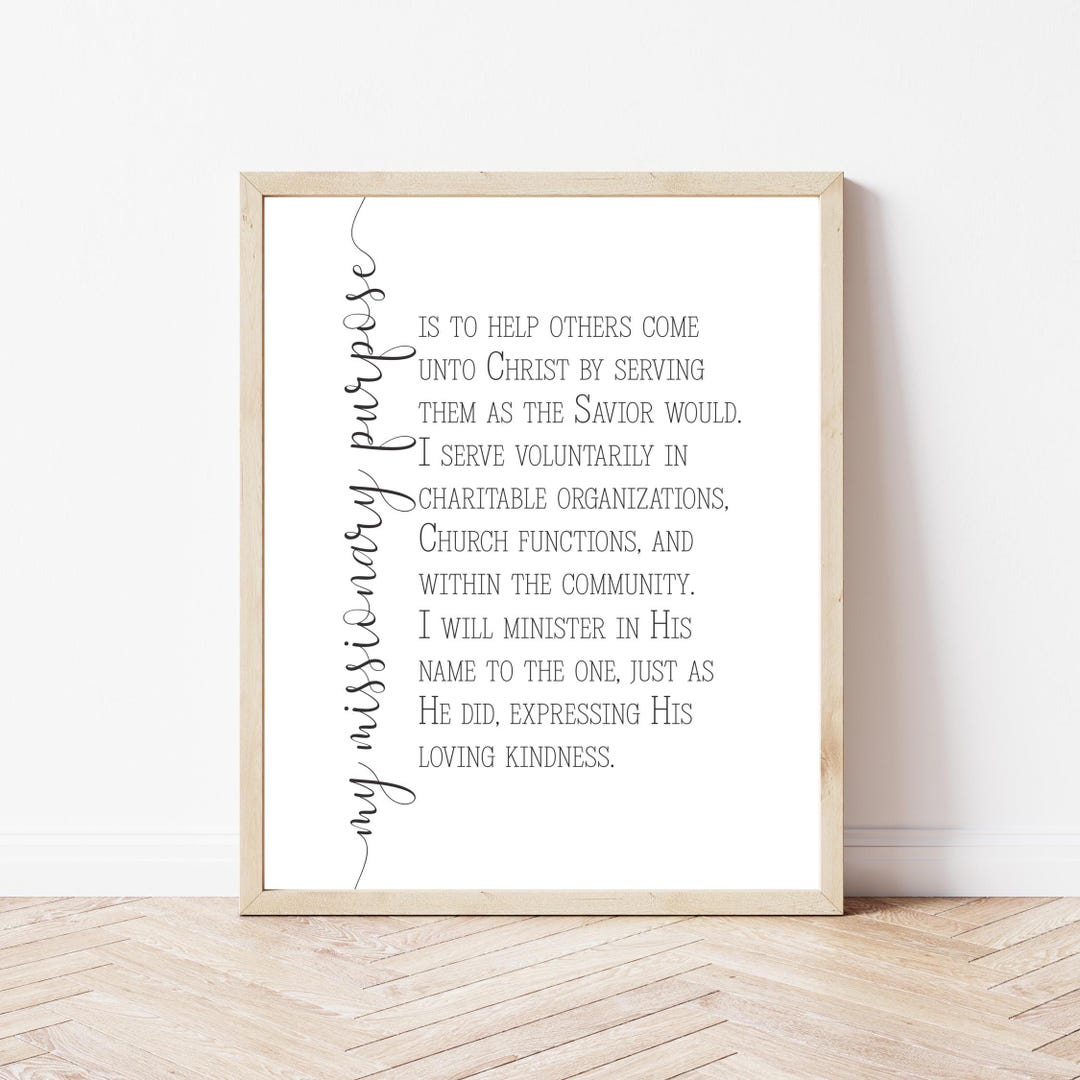 my missionary purpose
is to help others come
unto Christ by serving
them as the Savior would.
I serve voluntarily in
charitable organizations,
Church functions, and
within the community.
I will minister in His
name to the one, just as
He did, expressing His
loving kindness.